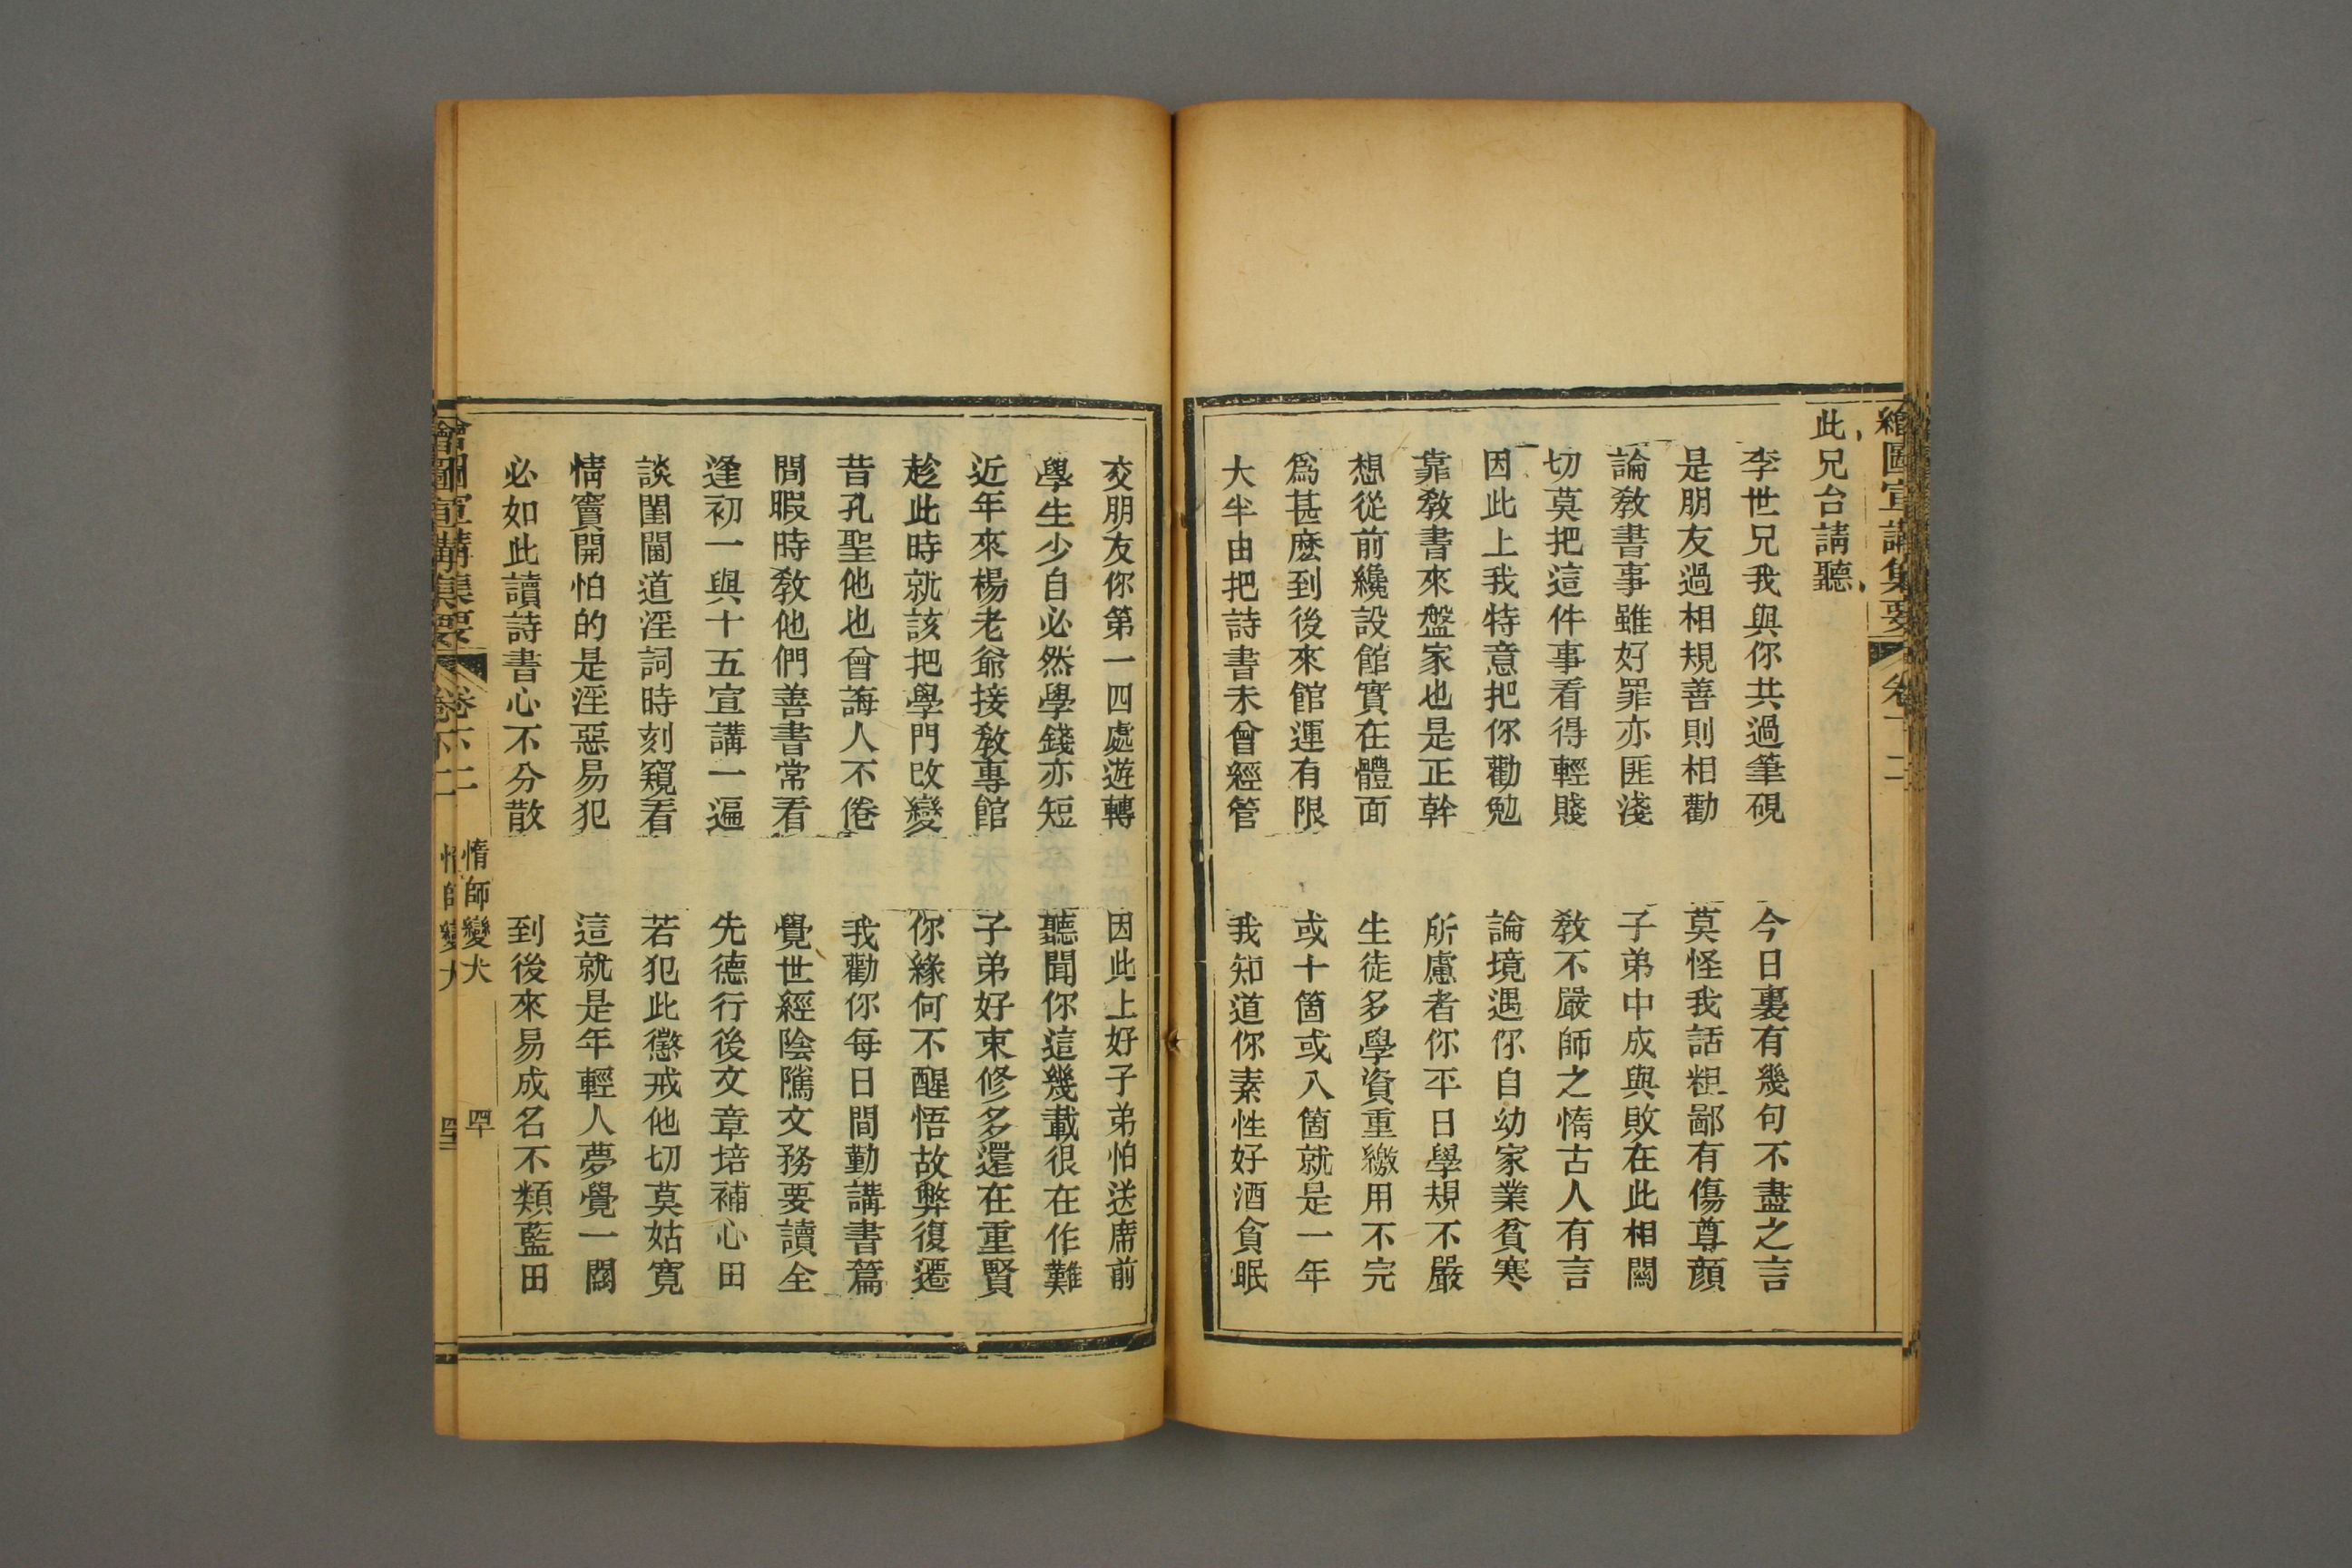 繪圖宣講集要
此兄台請聽
李世兄我與你共過筆硯 今日裏有幾句不盡之言
是朋友過相規善則相勸 莫怪我話粗鄙有傷尊顔
論敎書事雖好罪亦匪淺 子弟中成與敗在此相關
切莫把這件事看得輕賤 敎不嚴師之惰古人有言
因此上我特意把你勸勉 論境遇你自幼家業貧寒
靠敎書來盤家也是正幹 所慮者你平日學規不嚴
想從前纔設館實在體面 生徒多學資重繳用不完
爲甚麽到後來館運有限 或十箇或八箇就是一年
大半由把詩書未曾經管 我知道你素性好酒貪眠
交朋友你第一四處遊轉 因此上好子弟怕送席前
學生少自必然學錢亦短 聽聞你這幾載很在作難
近年來楊老爺接敎專館 子弟好束修多還在重賢
趁此時就該把學門改變 你緣何不醒悟故弊復還
昔孔聖他也曾誨人不倦 我勸你每日間勤講書篇
間暇時敎他們善書常看 覺世經陰隲文務要讀全
逢初一與十五宣講一遍 先德行後文章培補心田
談閨閫道淫詞時刻窺看 若犯此懲戒他切莫姑寬
情竇開怕的是淫惡易犯 這就是年輕人夢覺一關
必如此讀詩書心不分散 到後來易成名不類藍田
繪圖宣講集要 卷十二 惰師變犬 四十